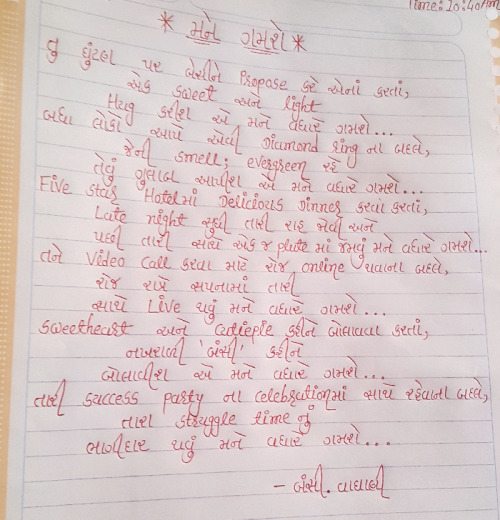 Time: 10:40 Am
* મને ગમશે *
તું ઘુંટણ પર બેસીને Propose કરે એનાં કરતાં,
એક sweet અને light
Hug કરીશ એ મને વધારે ગમશે...
બધા લોકો આપે એવી Diamond ring ના બદલે,
જેની smell; evergreen રહે
તેવું ગુલાબ આપીશ એ મને વધારે ગમશે...
Five star Hotel માં Delicious Dinner કરવા કરતાં,
Late night સુધી તારી રાહ જોવી અને
પછી તારી સાથે એક જ plate માં જમવું મને વધારે ગમશે...
તને Video call કરવા માટે રોજ online થવાના બદલે,
રોજ રાત્રે સપનામાં તારી
સાથે Live થવું મને વધારે ગમશે...
Sweetheart અને Cutiepie કહીને બોલાવવા કરતાં,
નખરાળી 'બંસી' કહીને
બોલાવીશ એ મને વધારે ગમશે...
તારી success party ના celebration માં સાથે રહેવાના બદલે,
તારા struggle time નું
ભાગીદાર થવું મને વધારે ગમશે...
- બંસી. વાઘાણી